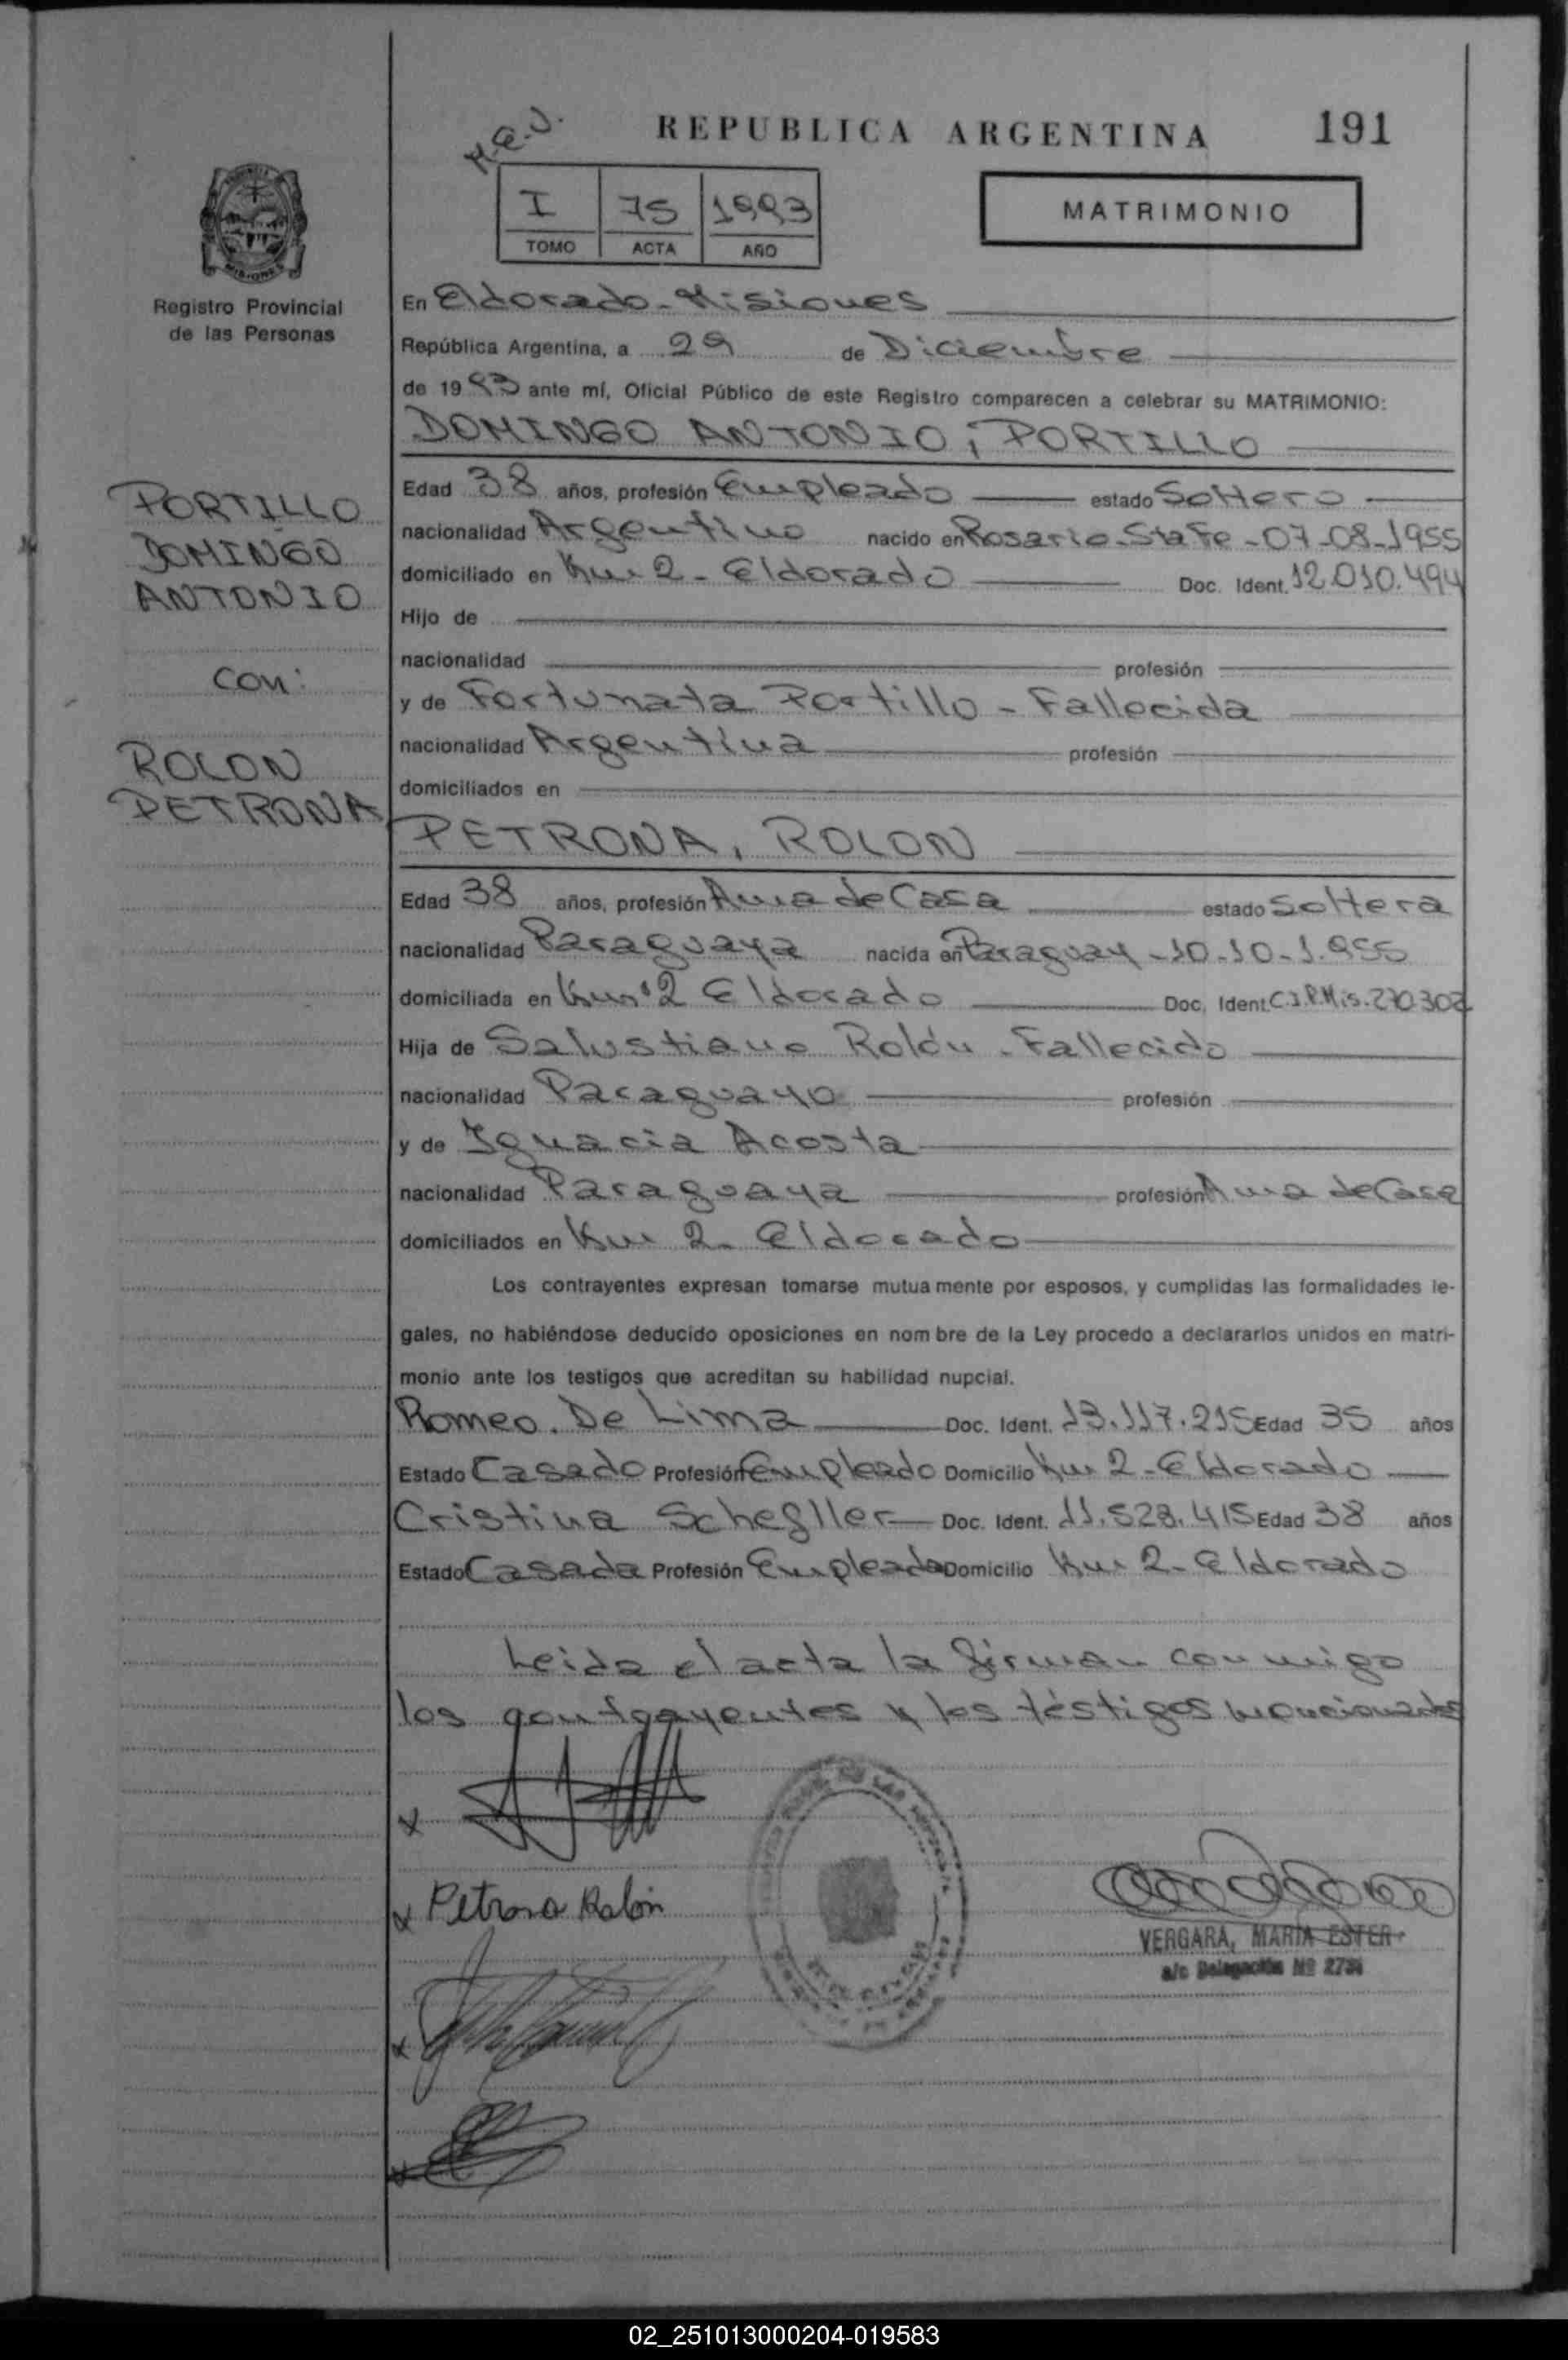 REPUBLICA ARGENTINA 191
H.E.J.
I 75 1993
TOMO ACTA AÑO
MATRIMONIO
MISIONES
Registro Provincial
de las Personas
En Eldorado - Misiones
República Argentina, a 29 de Diciembre
de 1993 ante mí, Oficial Público de este Registro comparecen a celebrar su MATRIMONIO:
DOMINGO ANTONIO, PORTILLO
PORTILLO
DOMINGO
ANTONIO
con:
ROLON
PETRONA
Edad 38 años, profesión Empleado estado Soltero
nacionalidad Argentino nacido en Rosario - Sta Fe - 07-08-1955
domiciliado en Km 2 - Eldorado Doc. Ident. 12.010.494
Hijo de
nacionalidad profesión
y de Fortunata Portillo - Fallecida
nacionalidad Argentina profesión
domiciliados en
PETRONA, ROLON
Edad 38 años, profesión Ama de Casa estado Soltera
nacionalidad Paraguaya nacida en Paraguay - 10-10-1.955
domiciliada en Km 2 Eldorado Doc. Ident. C.I.P.Mis. 270.302
Hija de Salustiano Rolón - Fallecido
nacionalidad Paraguayo profesión
y de Ignacia Acosta
nacionalidad Paraguaya profesión Ama de Casa
domiciliados en Km 2 - Eldorado
Los contrayentes expresan tomarse mutuamente por esposos, y cumplidas las formalidades le-
gales, no habiéndose deducido oposiciones en nombre de la Ley procedo a declararlos unidos en matri-
monio ante los testigos que acreditan su habilidad nupcial.
Romeo. De Lima Doc. Ident. 13.117.215 Edad 35 años
Estado Casado Profesión Empleado Domicilio Km 2 - Eldorado
Cristina Schegller Doc. Ident. 11.528.415 Edad 38 años
Estado Casada Profesión Empleada Domicilio Km 2 - Eldorado
Leida el acta la firman conmigo
los contrayentes y los testigos mencionados
x
x Petrona Rolón
VERGARA, MARÍA ESTER
a/c Delegación Nº 273
x
x
02_251013000204-019583